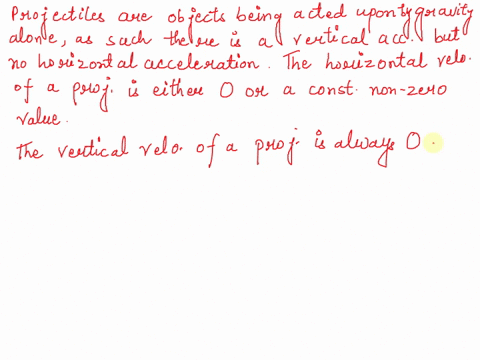 Projectiles are objects being acted upon by gravity
alone, as such there is a vertical acc. but
no horizontal acceleration. The horizontal velo.
of a proj. is either 0 or a const. non-zero
value.
The vertical velo. of a proj. is always 0